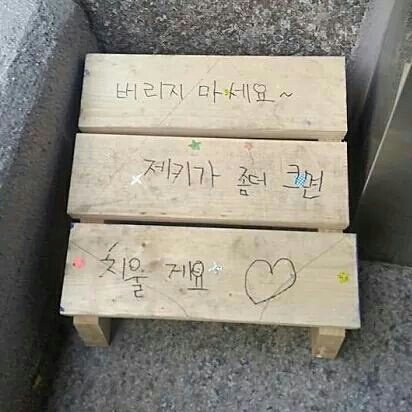 버리지 마세요~
제키가 좀더 크면
치울게요 ♡